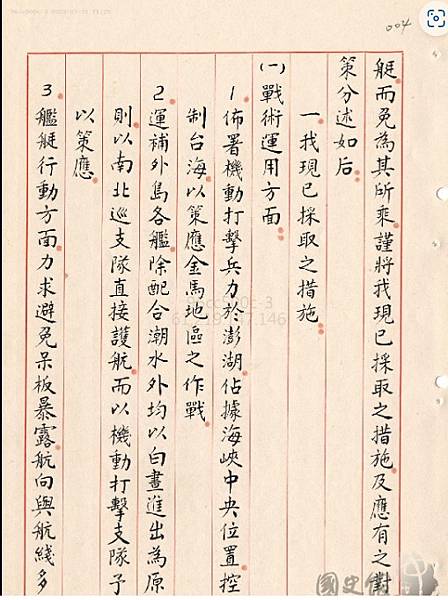 004
艇而免為其所乘謹將我現已採取之措施及應有之對
策分述如后
一、我現已採取之措施
(一)戰術運用方面
1.佈署機動打擊兵力於澎湖佔據海峽中央位置控
制台海以策應金馬地區之作戰
2.運補外島各艦除配合潮水外均以白晝進出為原
則以南北巡支隊直接護航而以機動打擊支隊予
以策應
3.艦艇行動方面力求避免呆板暴露航向與航綫多
國史館